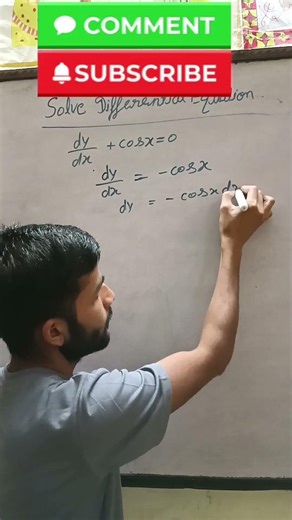 COMMENT
SUBSCRIBE
Solve Differential Equation.
dy/dx + cosx = 0
dy/dx = -cosx
dy = -cosx dx